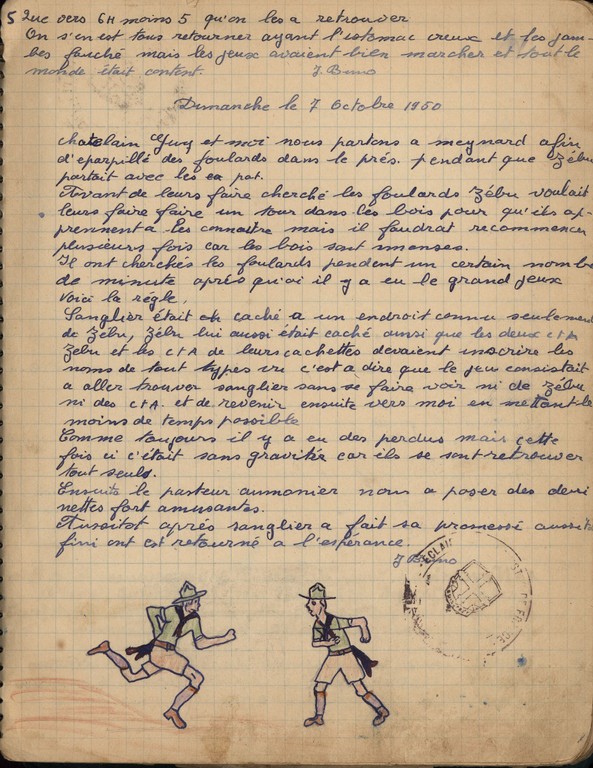 5 Que vers 6H moins 5 qu'on les a retrouver
On s'en est tous retourner ayant l'estomac creux et les jam-
bes fauché mais les jeux avaient bien marcher et tout le
monde était content. J. Bruno
Dimanche le 7 Octobre 1950
chatelain Guy et moi nous partons a meynard afin
d'eparpillé des foulards dans le prés. pendant que Zébu
partait avec les en pat.
Avant de leurs faire cherché les foulards Zébu voulait
leurs faire faire un tour dans les bois pour qu'ils ap-
prennent à les connaitre mais il faudrat recommencer
plusieurs fois car les bois sont imenses.
Il ont cherchés les foulards pendent un certain nombre
de minute après quoi il y a eu le grand jeux
Voici la régle,
Sanglier était caché a un endroit connu seulement
de Zébu, Zébu lui aussi était caché ainsi que les deux CTA
Zébu et les CTA de leurs cachettes devaient inscrire les
noms de tout types vu c'est a dire que le jeu consistait
a aller trouver sanglier sans se faire voir ni de Zébu
ni des CTA. et de revenir ensuite vers moi en mettant le
moins de temps possible
Comme toujours il y a eu des perdus mais cette
fois ci c'était sans gravitée car ils se sont retrouver
tout seuls.
Ensuite le pasteur aumonier nous a poser des devi
nettes fort amusantes.
Aussitot après sanglier a fait sa promesse aussitôt
fini ont est retourné a l'espérance.
J Bruno
ECLAI
DE FRANCE